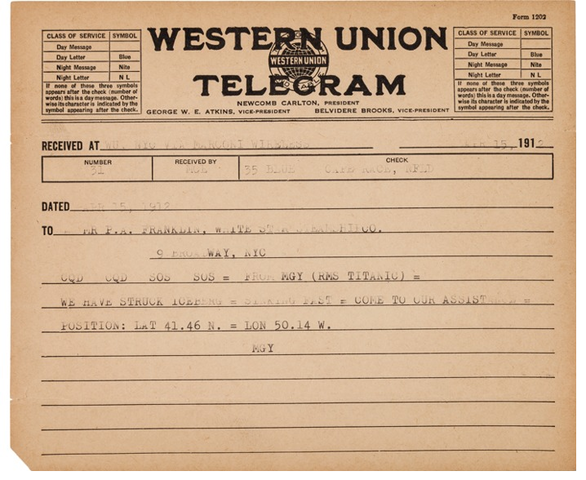 Form 1202
CLASS OF SERVICE SYMBOL
Day Message
Day Letter Blue
Night Message Nite
Night Letter N L
If none of these three symbols appears after the check (number of words) this is a day message. Otherwise its character is indicated by the symbol appearing after the check.
WESTERN UNION
WESTERN UNION
TELEGRAM
NEWCOMB CARLTON, PRESIDENT
GEORGE W. E. ATKINS, VICE-PRESIDENT BELVIDERE BROOKS, VICE-PRESIDENT
CLASS OF SERVICE SYMBOL
Day Message
Day Letter Blue
Night Message Nite
Night Letter N L
If none of these three symbols appears after the check (number of words) this is a day message. Otherwise its character is indicated by the symbol appearing after the check.
RECEIVED AT WU. NYC VIA MARCONI WIRELESS 15, 1912
NUMBER RECEIVED BY CHECK
31 35 BLUE CAPE RACE, NFLD
DATED APR 15, 1912
TO MR P.A. FRANKLIN, WHITE STAR CO.
9 BROADWAY, NYC
CQD CQD SOS SOS = FROM MGY (RMS TITANIC) =
WE HAVE STRUCK ICEBERG = SINKING FAST = COME TO OUR ASSISTANCE =
POSITION: LAT 41.46 N. = LON 50.14 W.
MGY